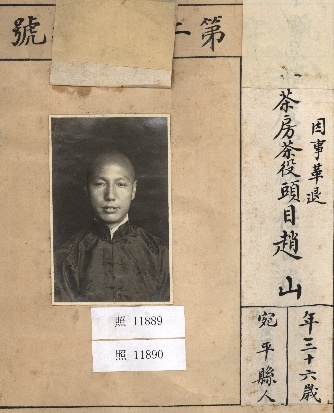 第二 號
因事革退
茶房茶役頭目趙山
年三十六歲
宛平縣人
照 11889
照 11890